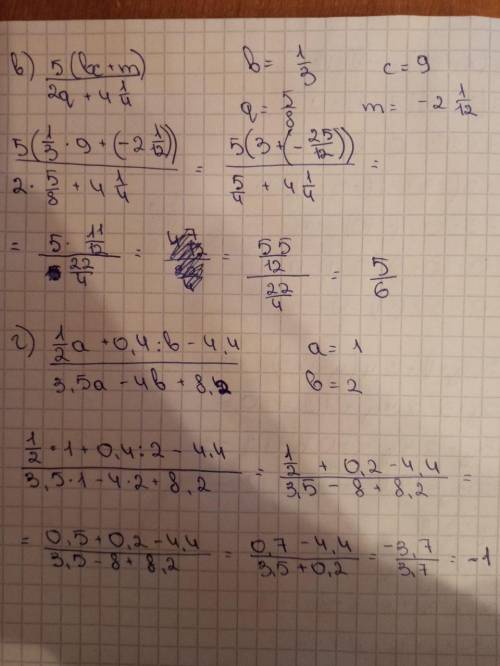 в) 5(bc+m) / 2q + 4 1/4    b = 1/3    c = 9
q = 5/8    m = -2 1/12
5(1/3 · 9 + (-2 1/12)) / 2 · 5/8 + 4 1/4 = 5(3 + (- 25/12)) / 5/4 + 4 1/4 =
= 5 · 11/12 / 22/4 = = 55/12 / 22/4 = 5/6
г) 1/2 a + 0,4 : b - 4,4 / 3,5a - 4b + 8,2    a = 1
b = 2
1/2 · 1 + 0,4 : 2 - 4,4 / 3,5 · 1 - 4 · 2 + 8,2 = 1/2 + 0,2 - 4,4 / 3,5 - 8 + 8,2 =
= 0,5 + 0,2 - 4,4 / 3,5 - 8 + 8,2 = 0,7 - 4,4 / 3,5 + 0,2 = -3,7 / 3,7 = -1